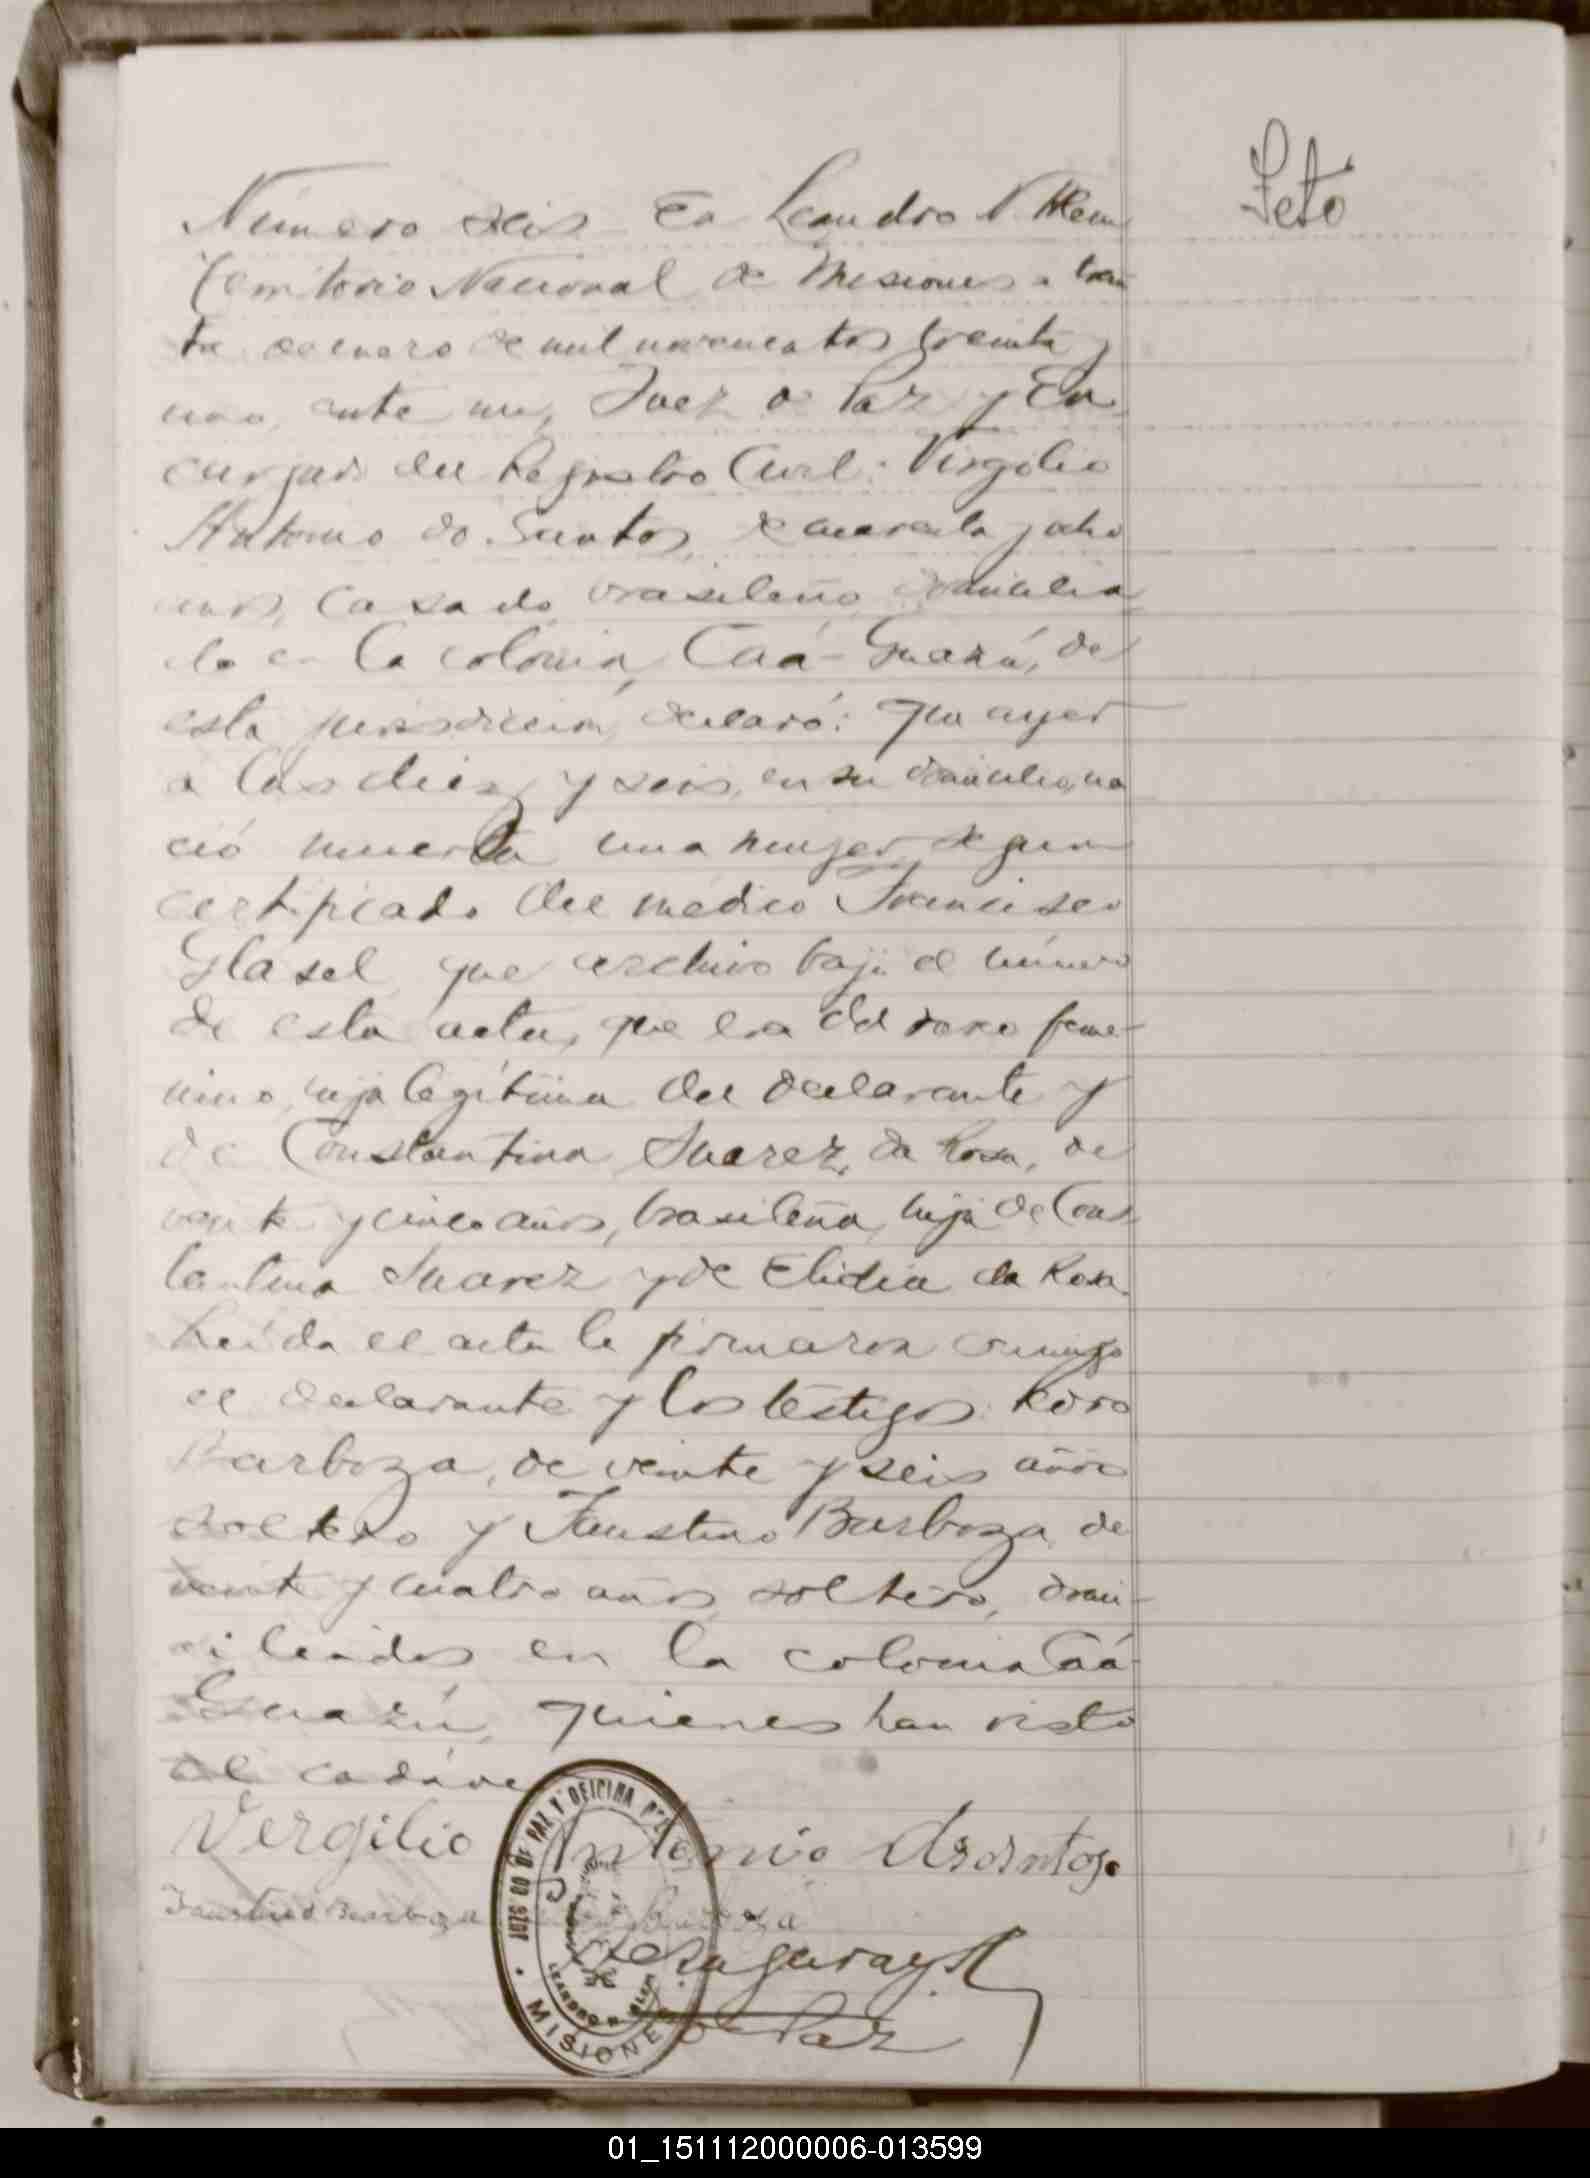 Feto
Número seis En Leandro N. Alem
Territorio Nacional de Misiones a trein
ta de enero de mil novecientos treinta y
uno, ante mi, Juez de Paz y En
cargado del Registro Civil: Virgilio
Antonio do Santos, de cuarenta y ocho
años, casado, brasileño, domicilia
do en la colonia, Caá-Guazú, de
esta jurisdicción, declaró: Que ayer
a las diez y seis, en su domicilio, na
ció muerta una mujer segun
certificado del médico Francisco
Glasel que archivo bajo el número
de esta acta, que era del sexo feme-
nino, hija legítima del declarante y
de Constantina Suarez da Rosa, de
veinte y cinco años, brasileña, hija de Cons
tantino Suarez y de Elidia da Rosa.
Leída el acta la firmaron conmigo
el declarante y los testigos:
Barboza, de veinte y seis años
soltero y Faustino Barboza, de
veinte y cuatro años, soltero, domi-
ciliados en la colonia Caá-
Guazú, quienes han visto
el cadáver
Vergilio Antonio
Faustino Barboza
de Paz
JUZGADO DE PAZ Y OFICINA
LEANDRO N. ALEM
MISIONES
01_151112000006-013599